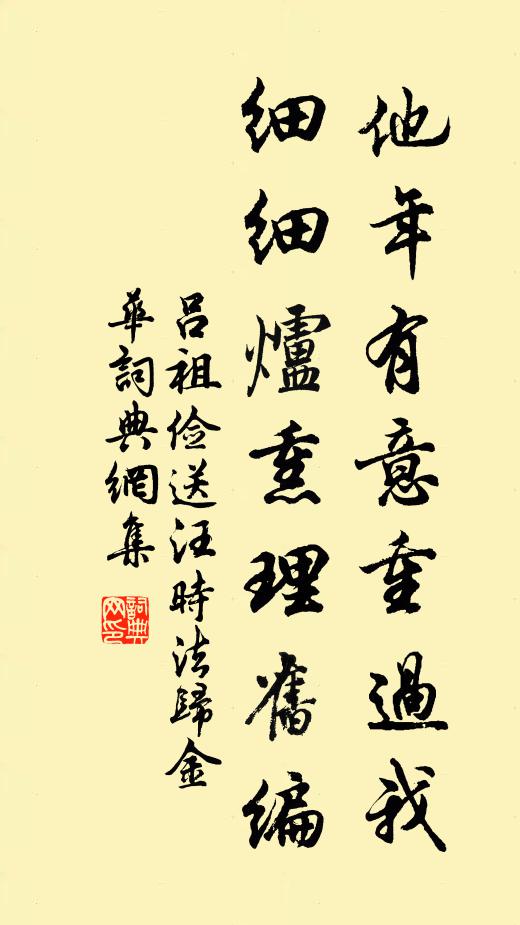 他年有意重過我
細細爐熏理舊編
呂祖儉送汪時法歸金
華詞典網集
詞典
网印